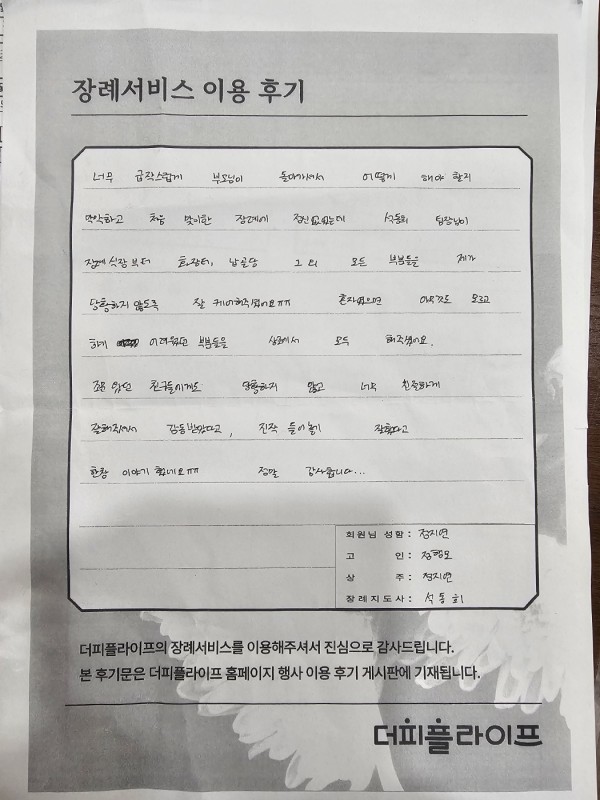 장례서비스 이용 후기
너무 급작스럽게 부모님이 돌아가셔서 어떻게 해야 할지
막막하고 처음 맞이한 장례에 정신없었는데 석동희 팀장님이
장례식장부터 화장터, 납골당 그 외 모든 부분들을 제가
당황하지 않도록 잘 케어해주셨어요ㅠㅠ 혼자였으면 아무것도 모르고
하기 어려웠던 부분들을 상세서 모두 해주셨어요.
조문 왔던 친구들에게도 당황하지 않고 너무 친절하게
잘해주셔서 감동받았다고, 진작 들어놓기 잘했다고
한참 이야기 했네요ㅠㅠ 정말 감사합니다...
회원님 성함 : 정지연
고 인 : 정형모
상 주 : 정지연
장례지도사 : 석동희
더피플라이프의 장례서비스를 이용해주셔서 진심으로 감사드립니다.
본 후기문은 더피플라이프 홈페이지 행사 이용 후기 게시판에 기재됩니다.
더피플라이프